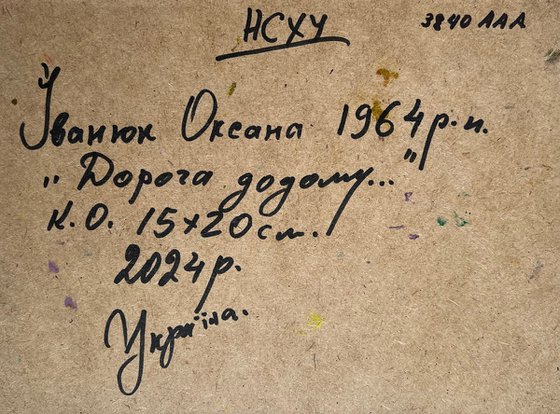 НСХУ
3840 ААА
Іванюк Оксана 1964 р.н.
"Дорога додому..."
К.О. 15x20 см.
2024 р.
Україна.